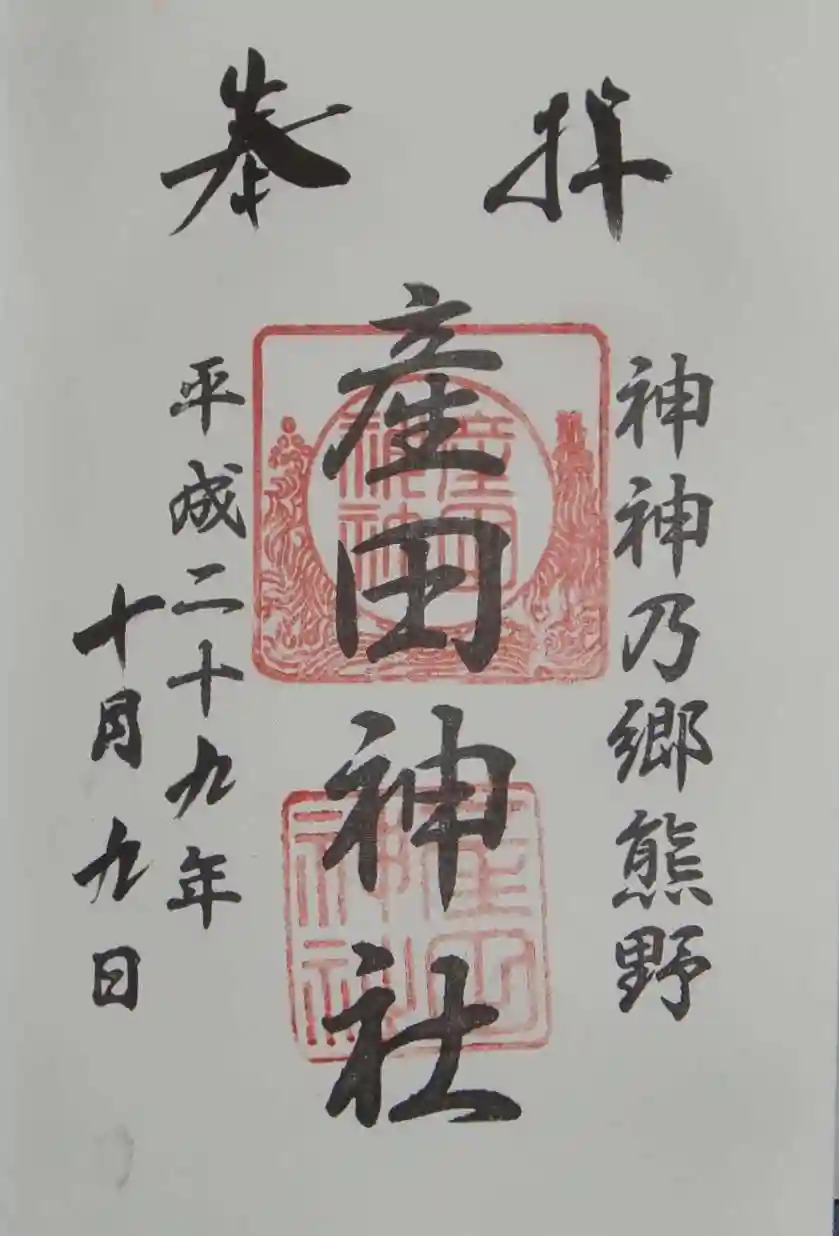 奉拝
神神乃郷熊野
産田神社
平成二十九年
十月九日
産田神社
産田神社